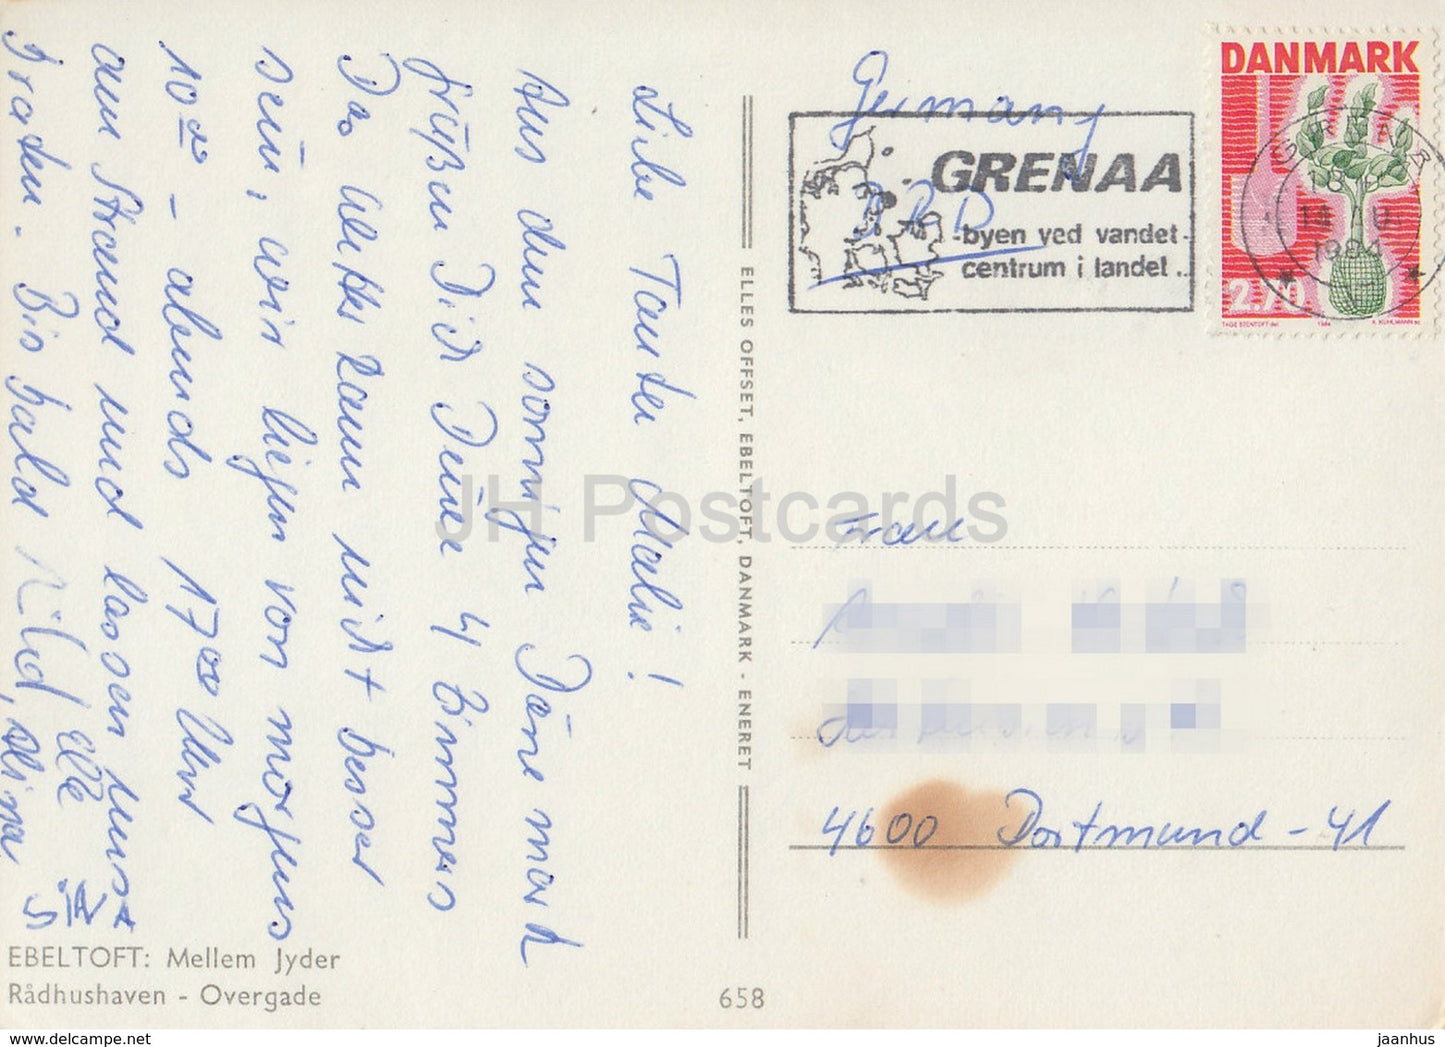 Liebe Tante Malie!
Aus dem sonnigen Dänemark
grüßen Dich Deine 4 Zimmers
Das Wetter kann nicht besser
sein, wir liegen von morgens
10 00 - abends 17 00 Uhr
am Strand und lassen uns
braten. Bis bald
EBELTOFT: Mellem Jyder
Rådhushaven - Overgade
658
ELLES OFFSET, EBELTOFT, DANMARK - ENERET
Germany
BRD
GRENAA
-byen ved vandet-
centrum i landet..
DANMARK
2.70
TAGE STENTOFT del. 1984 A. KUHLMANN sc.
GRENÅ
1984
Frau
4600 Dortmund - 41
JH Postcards
www.hippostcard.net
jaanhus